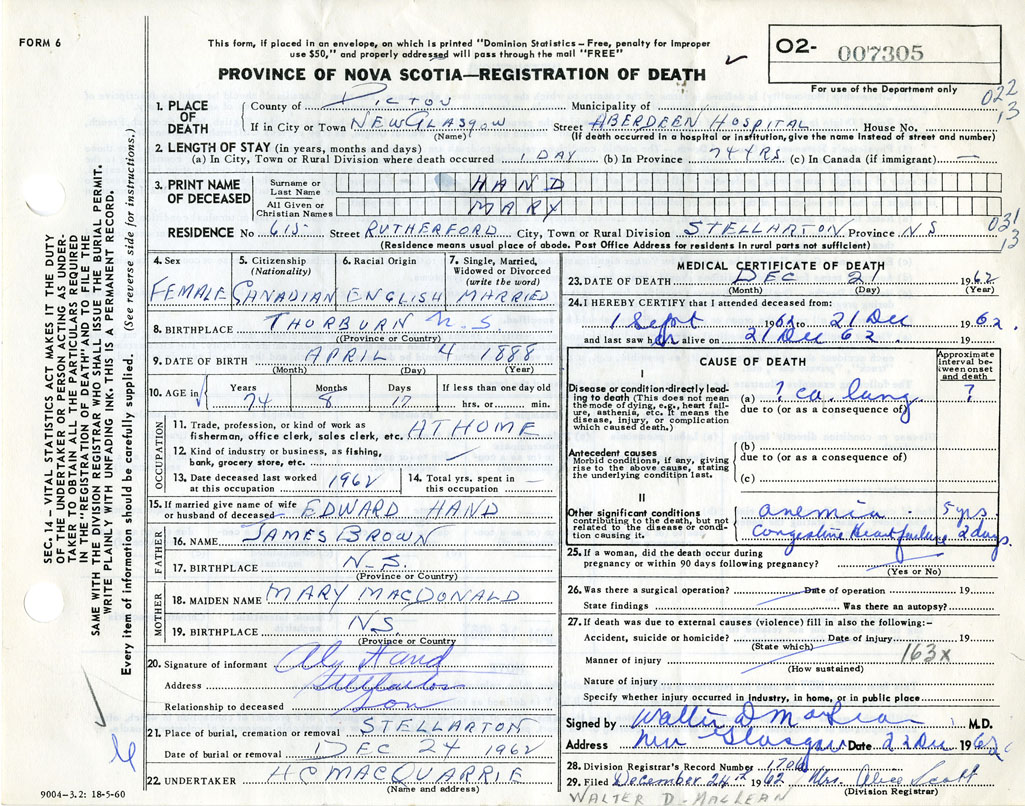 FORM 6
This form, if placed in an envelope, on which is printed "Dominion Statistics – Free, penalty for improper
use $50," and properly addressed will pass through the mail "FREE"
PROVINCE OF NOVA SCOTIA—REGISTRATION OF DEATH
O2- 007305
For use of the Department only
022
13
1. PLACE OF DEATH
County of PICTOU Municipality of
If in City or Town NEW GLASGOW Street ABERDEEN HOSPITAL House No.
(Name) (If death occurred in a hospital or institution, give the name instead of street and number)
2. LENGTH OF STAY (in years, months and days)
(a) In City, Town or Rural Division where death occurred 1 DAY (b) In Province 74 YRS. (c) In Canada (if immigrant) —
3. PRINT NAME OF DECEASED
Surname or Last Name HAND
All Given or Christian Names MARY
RESIDENCE No 615- Street RUTHERFORD City, Town or Rural Division STELLARTON Province N S
031
13
(Residence means usual place of abode. Post Office Address for residents in rural parts not sufficient)
4. Sex
FEMALE
5. Citizenship
(Nationality)
CANADIAN
6. Racial Origin
ENGLISH
7. Single, Married,
Widowed or Divorced
(write the word)
MARRIED
8. BIRTHPLACE THORBURN N.S.
(Province or Country)
9. DATE OF BIRTH APRIL 4 1888
(Month) (Day) (Year)
10. AGE in
Years Months Days If less than one day old
74 8 17 hrs. or min.
OCCUPATION
11. Trade, profession, or kind of work as
fisherman, office clerk, sales clerk, etc. AT HOME
12. Kind of industry or business, as fishing,
bank, grocery store, etc.
13. Date deceased last worked
at this occupation 1962
14. Total yrs. spent in
this occupation —
15. If married give name of wife
or husband of deceased EDWARD HAND
FATHER
16. NAME JAMES BROWN
17. BIRTHPLACE N.S.
(Province or Country)
MOTHER
18. MAIDEN NAME MARY MACDONALD
19. BIRTHPLACE N.S.
(Province or Country
20. Signature of informant Hand
Address Stellarton
Relationship to deceased Son
21. Place of burial, cremation or removal STELLARTON
Date of burial or removal DEC 24 1962
22. UNDERTAKER H C MACQUARRIE
9004-3.2: 18-5-60
MEDICAL CERTIFICATE OF DEATH
23. DATE OF DEATH DEC 21 1962
(Month) (Day) (Year)
24. I HEREBY CERTIFY that I attended deceased from:
1 Sept 1962 to 21 Dec 1962
and last saw h alive on 21 Dec 62 19
CAUSE OF DEATH
Approximate
interval be-
tween onset
and death
I
Disease or condition-directly lead-
ing to death (This does not mean
the mode of dying, e.g., heart fail-
ure, asthenia, etc. It means the
disease, injury, or complication
which caused death.)
(a) ? ca. lung ?
due to (or as a consequence of)
Antecedent causes
Morbid conditions, if any, giving
rise to the above cause, stating
the underlying condition last.
(b)
due to (or as a consequence of)
(c)
II
Other significant conditions
contributing to the death, but not
related to the disease or condi-
tion causing it.
anemia 5 yrs.
Congestive Heart failure 2 days.
25. If a woman, did the death occur during
pregnancy or within 90 days following pregnancy?
(Yes or No)
26. Was there a surgical operation? Date of operation 19
State findings Was there an autopsy?
27. If death was due to external causes (violence) fill in also the following:–
Accident, suicide or homicide? Date of injury 19
(State which)
Manner of injury 163x
(How sustained)
Nature of injury
Specify whether injury occurred in industry, in home, or in public place
Signed by Walter D MacLean M.D.
Address New Glasgow Date 22 Dec 1962
28. Division Registrar's Record Number 1706
29. Filed December 24th 1962 Mrs. Alice Scott
(Division Registrar)
WALTER D. MACLEAN
SEC. 14 – VITAL STATISTICS ACT MAKES IT THE DUTY
OF THE UNDERTAKER OR PERSON ACTING AS UNDER-
TAKER TO OBTAIN ALL THE PARTICULARS REQUIRED
IN THE "REGISTRATION OF DEATH" AND TO FILE THE
SAME WITH THE DIVISION REGISTRAR WHO SHALL ISSUE THE BURIAL PERMIT.
WRITE PLAINLY WITH UNFADING INK. THIS IS A PERMANENT RECORD.
Every item of information should be carefully supplied. (See reverse side for instructions.)